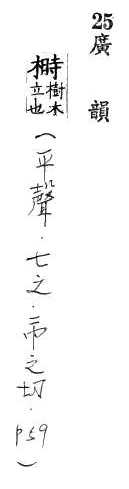 25廣韻
榯樹木立也(平聲．七之．市之切．P59)